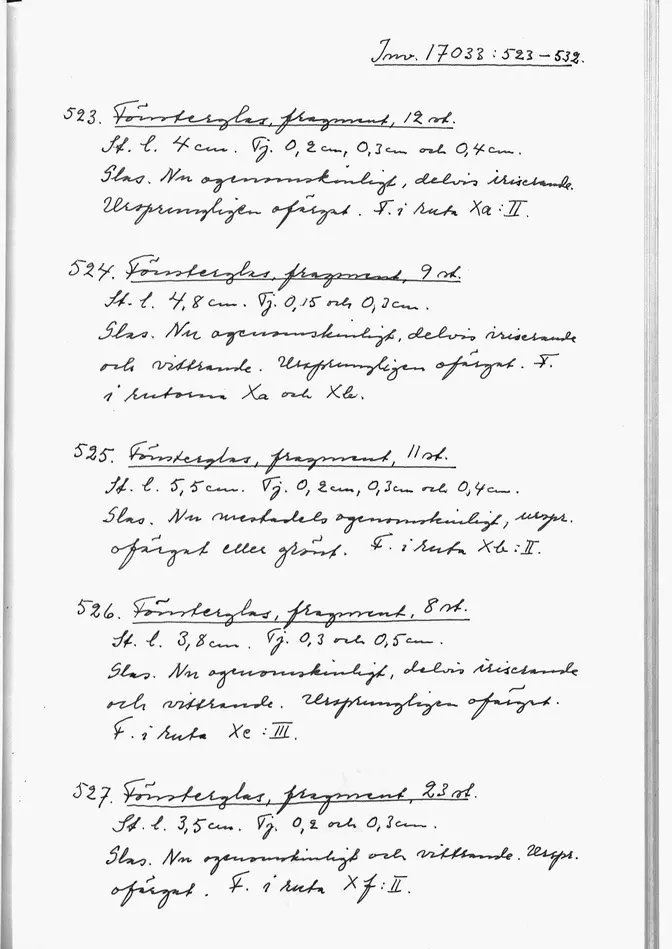 Inv. 17033:523-532.
523. Fönsterglas, fragment, 12 st.
St. l. 4 cm. Tj. 0,2 cm, 0,3 cm och 0,4 cm.
Glas. Nu ogenomskinligt, delvis iriserande.
Ursprungligen ofärgat. F. i ruta Xa:II.
524. Fönsterglas, fragment, 9 st.
St. l. 4,8 cm. Tj. 0,15 och 0,3 cm.
Glas. Nu ogenomskinligt, delvis iriserande
och vittrande. Ursprungligen ofärgat. F.
i rutorna Xa och Xb.
525. Fönsterglas, fragment, 11 st.
St. l. 5,5 cm. Tj. 0,2 cm, 0,3 cm och 0,4 cm.
Glas. Nu mestadels ogenomskinligt, urspr.
ofärgat eller grönt. F. i ruta Xb:II.
526. Fönsterglas, fragment, 8 st.
St. l. 3,8 cm. Tj. 0,3 och 0,5 cm.
Glas. Nu ogenomskinligt, delvis iriserande
och vittrande. Ursprungligen ofärgat.
F. i ruta Xe:III.
527. Fönsterglas, fragment, 23 st.
St. l. 3,5 cm. Tj. 0,2 och 0,3 cm.
Glas. Nu ogenomskinligt och vittrande. Urspr.
ofärgat. F. i ruta Xf:II.